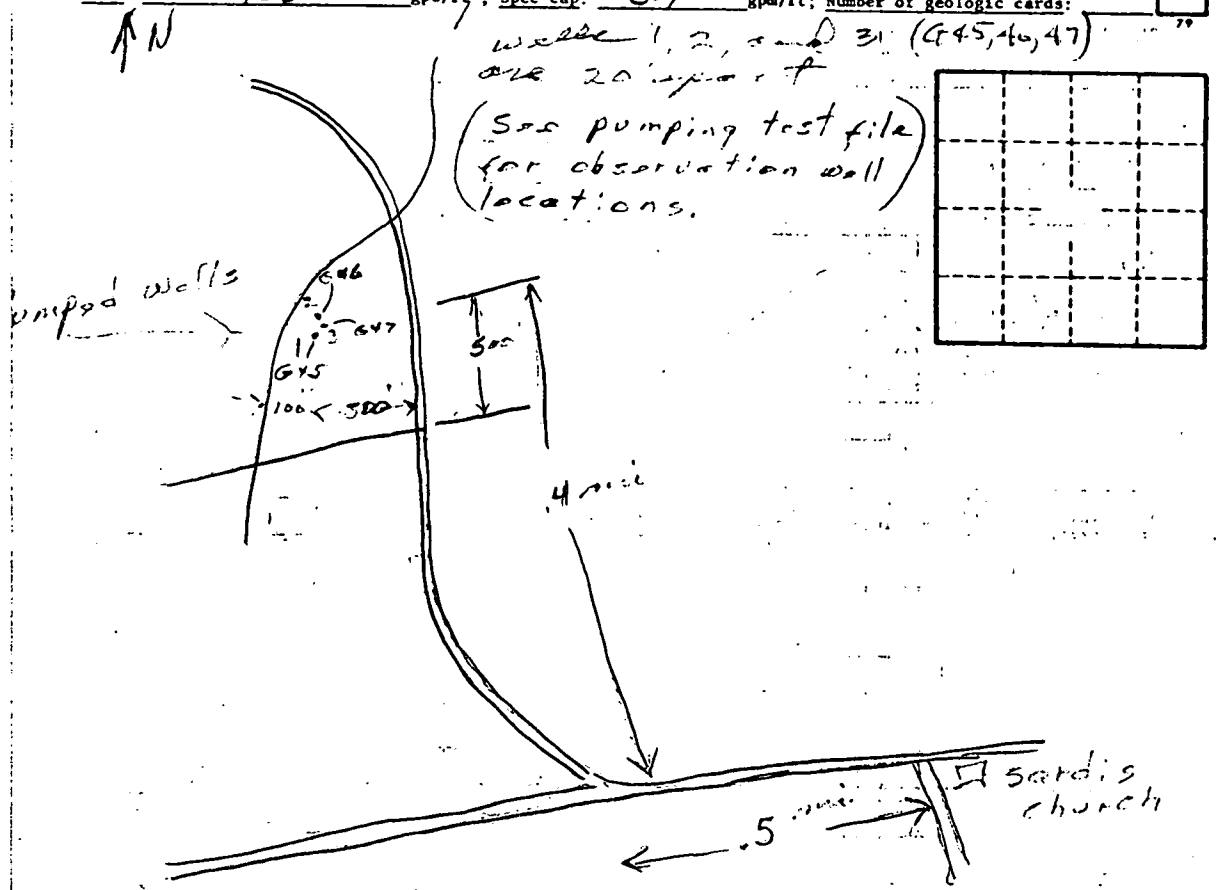 Spec cap: gpm/ft; Number of geologic cards:
79
N
wells 1, 2, and 3 (G45, 46, 47)
are 20' apart
(See pumping test file
for observation well
locations.)
G46
pumped wells
G47
500'
G45
100' 300'
.4 mi
Sardis
church
.5 mi